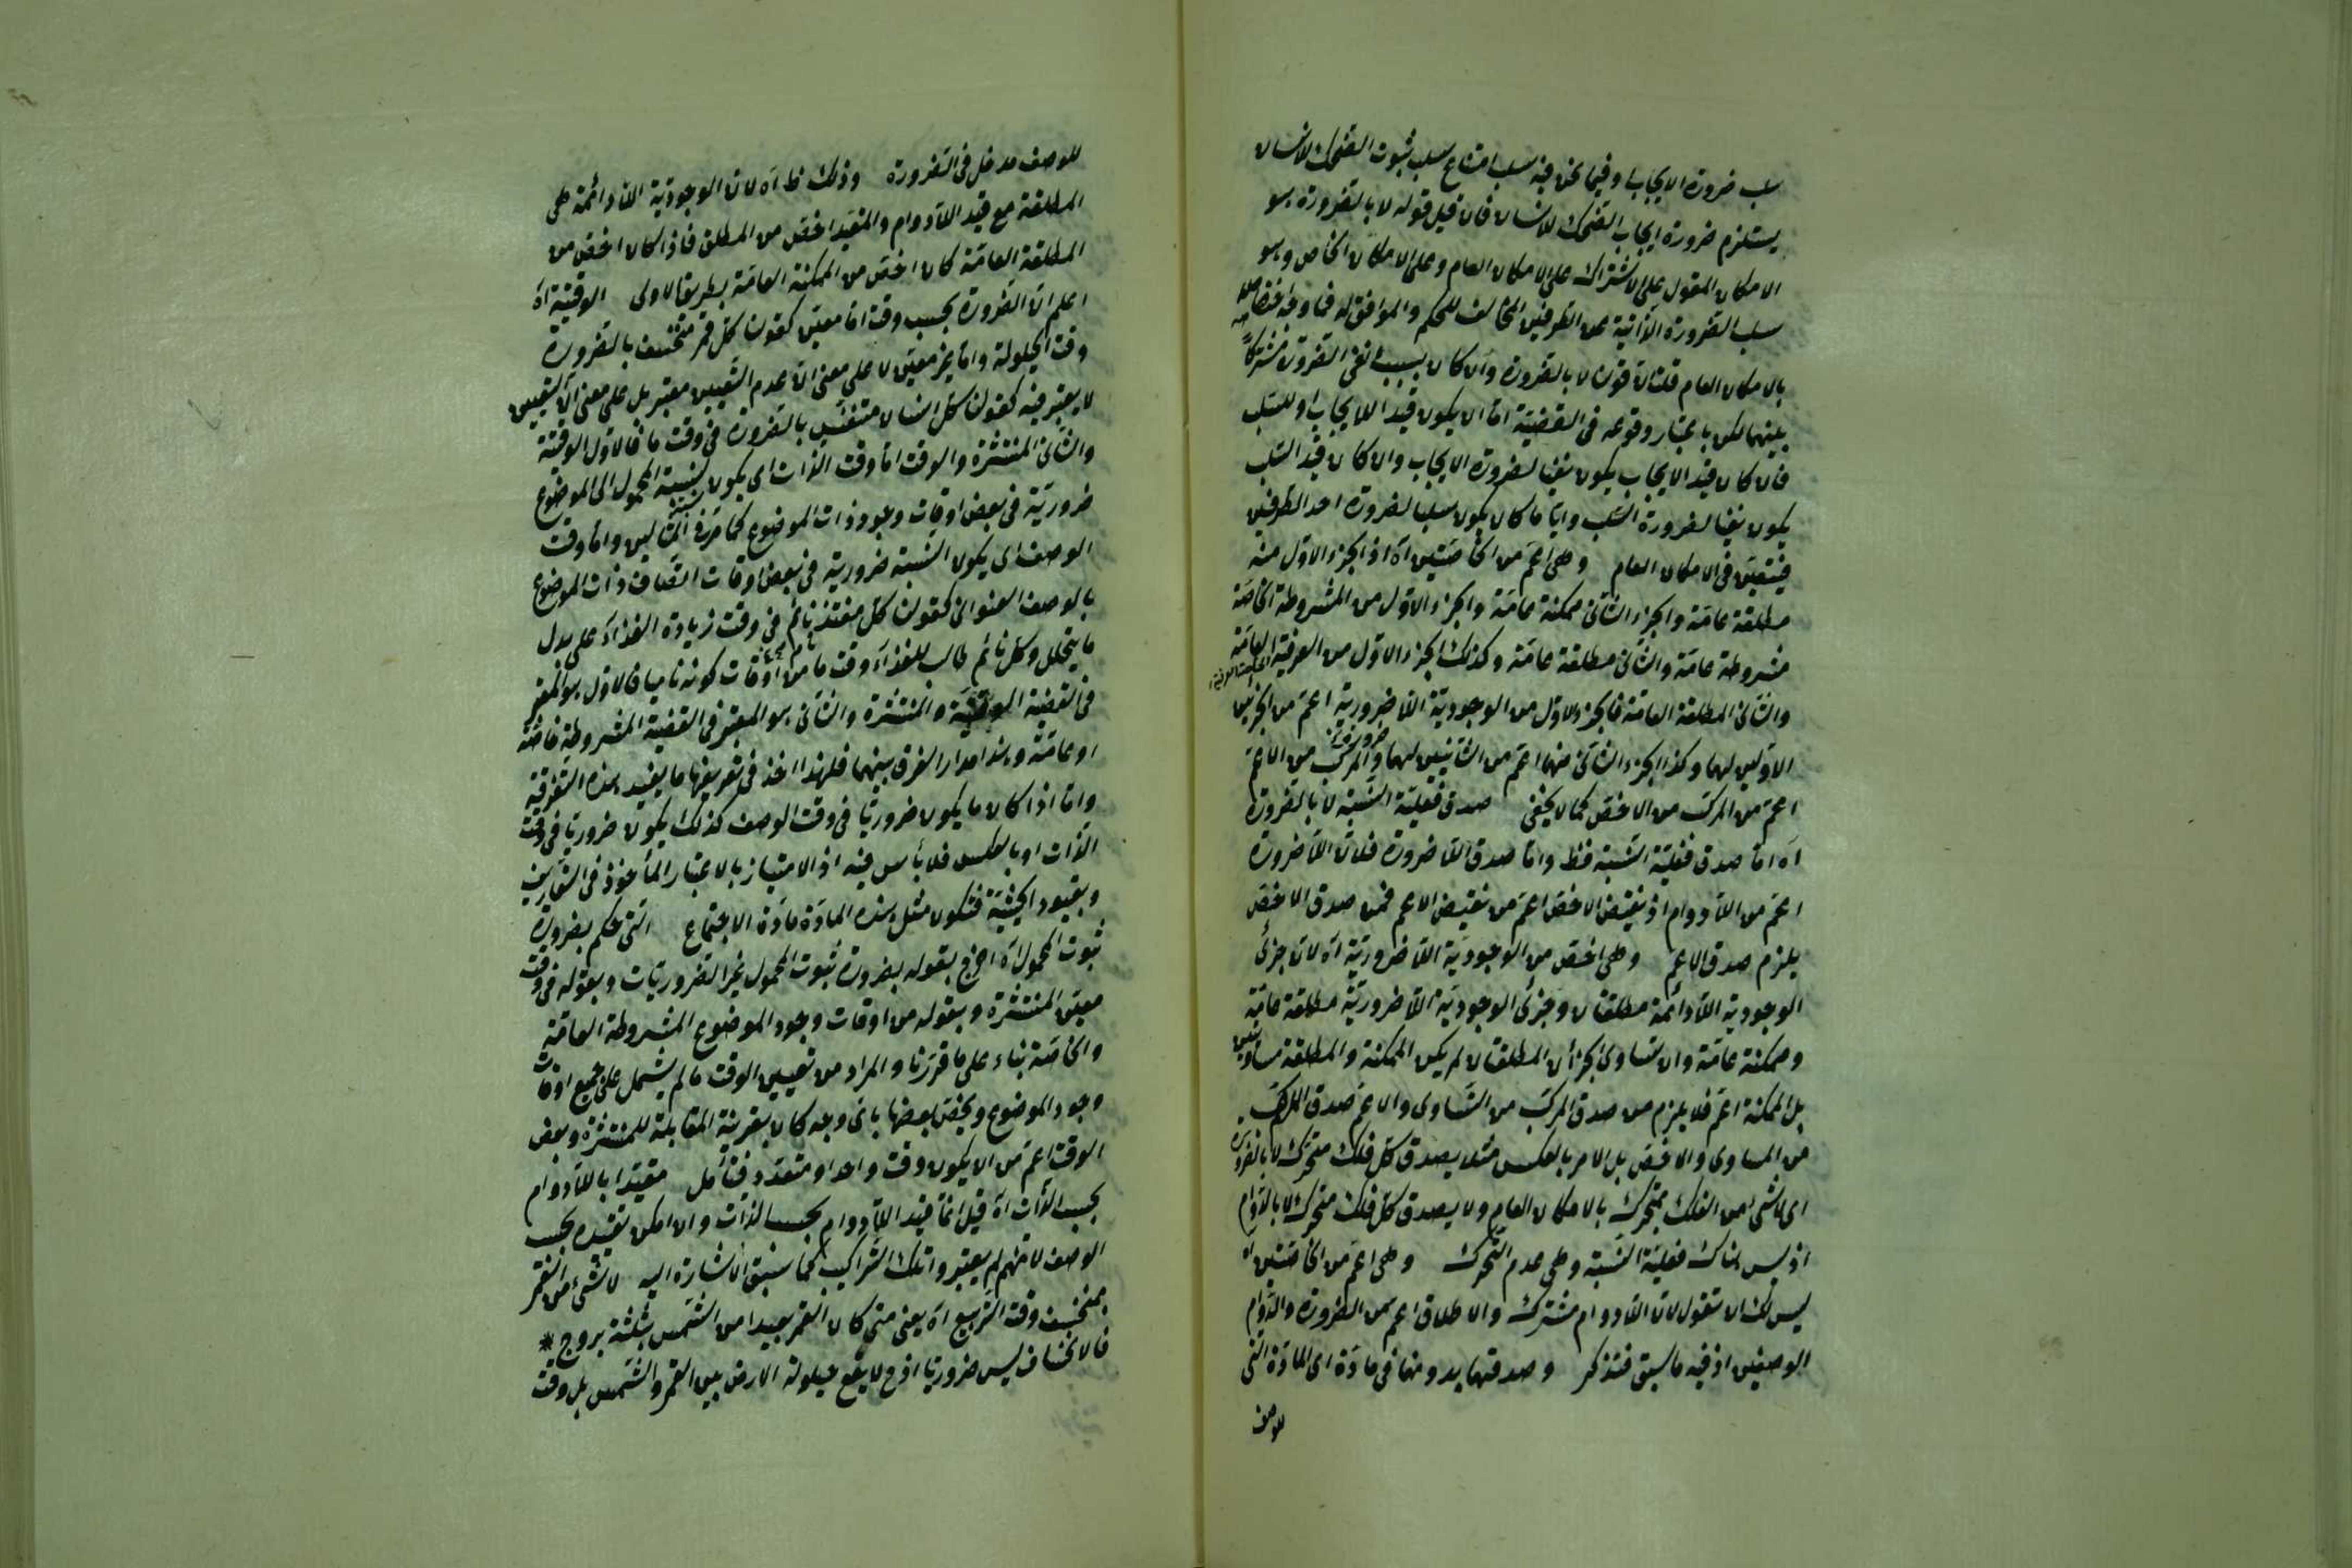 سلب ضرورة الايجاب وفيما نحن فيه سلب امتناع سلب ثبوت الضحك للانسان
يستلزم ضرورة ايجاب الضحك للانسان فان قيل قوله لا بالضرورة هو
الامكان المقول على الاشتراك على الامكان العام وعلى الامكان الخاص وهو
سلب الضرورة الذاتية عن الطرفين المخالف للحكم والموافق له فما وجه
بالامكان العام قلنا لان قولنا لا بالضرورة وان كان بسبب نفى الضرورة مشتركا
بينهما لكن باعتبار وقوعه فى القضية اما ان يكون قيدا للايجاب او للسلب
فان كان قيد الايجاب يكون نفيا لضرورة الايجاب وان كان قيد السلب
يكون نفيا لضرورة السلب وايا ما كان يكون سلبا لضرورة احد الطرفين
فيتعين فى الامكان العام وهى اعم من الخاصتين آه اذ الجزء الاول منه
مطلقة عامة والجزء الثانى ممكنة عامة والجزء الاول من المشروطة الخاصة
مشروطة عامة والثانى مطلقة عامة وكذلك الجزء الاول من العرفية العامة
والثانى المطلقة العامة فالجزء الاول من الوجودية اللا ضرورية اعم من الجزئين
الاولين لهما وكذا الجزء الثانى منها اعم من الثانيين لهما والمركب من الاعم
اعم من المركب من الاخص كما لا يخفى صدق فعلية النسبة لا بالضرورة
آه اما صدق فعلية النسبة فظ واما صدق اللا ضرورة فلان اللا ضرورة
اعم من اللا دوام اذ نقيض الاخص اعم من نقيض الاعم فمن صدق الاخص
يلزم صدق الاعم وهى اخص من الوجودية اللا ضرورية آه لان جزئى
الوجودية اللا دائمة مطلقتان وجزئى الوجودية اللا ضرورية مطلقة عامة
وممكنة عامة وان تساوى الجزآن المطلقتان لم يكن الممكنة والمطلقة متساويتين
بل الممكنة اعم فلا يلزم من صدق المركب من المساوى والاعم صدق المركب
من المساوى والاخص بل الامر بالعكس مثلا يصدق كل فلك متحرك لا بالضرورة
اى لا شئ من الفلك بمتحرك بالامكان العام ولا يصدق كل فلك متحرك لا بالدوام
اذ ليس هناك فعلية النسبة وهى عدم التحرك وهى اعم من الخاصتين آه
ليس لك ان تقول لان اللا دوام مشترك والاطلاق اعم من الضرورة والدوام
الوصفين اذ فيه ما سبق فتذكر وصدقهما بدونها فى مادة اى المادة التى
للوصف
للوصف مدخل فى الضرورة وذلك ظ آه لان الوجودية اللا دائمة هى
المطلقة مع قيد اللا دوام والمقيد اخص من المطلق فاذا كان اخص من
المطلقة العامة كان اخص من الممكنة العامة بطريق الاولى الوقتية آه
اعلم ان الضرورة بحسب وقت اما معين كقولنا كل قمر منخسف بالضرورة
وقت الحيلولة واما غير معين لا على معنى ان عدم التعيين معتبر بل على معنى ان التعيين
لا يعتبر فيه كقولنا كل انسان متنفس بالضرورة فى وقت ما فالاول الوقتية
والثانى المنتشرة والوقت اما وقت الذات اى يكون نسبة المحمول الى الموضوع
ضرورية فى بعض اوقات وجود ذات الموضوع كما مر فى المثالين واما وقت
الوصف اى يكون النسبة ضرورية فى بعض اوقات اتصاف ذات الموضوع
بالوصف العنوانى كقولنا كل مغتذ نام فى وقت زيادة الغذاء على بدل
ما يتحلل وكل نام طالب للغذاء وقت ما من اوقات كونه ناميا فالاول هو المعتبر
فى القضية الوقتية والمنتشرة والثانى هو المعتبر فى القضية المشروطة خاصة
او عامة وهذا مدار الفرق بينهما فلهذا اخذ فى تعريفها ما يفيد هذه التفرقة
واما اذا كان ما يكون ضروريا فى وقت الوصف كذلك يكون ضروريا فى وقت
الذات او بالعكس فلا بأس فيه اذ الامتياز بالاعتبار المأخوذ فى التعاريف
وبقيود الحيثية فتكون مثل هذه المادة مادة الاجتماع التى حكم بضرورة
ثبوت المحمول آه اخرج بقوله بضرورة ثبوت المحمول غير الضروريات وبقوله فى وقت
معين المنتشرة وبقوله من اوقات وجود الموضوع المشروطة العامة
والخاصة بناء على ما قررنا والمراد من تعيين الوقت ما لم يشمل على جميع اوقات
وجود الموضوع ويختص بعضها باى وجه كان بقرينة المقابلة للمنتشرة وبعض
الوقت اعم من ان يكون وقت واحد او متعدد فتأمل مقيدا باللا دوام
بحسب الذات آه قيل انما قيد اللا دوام بحسب الذات وان امكن تقييده بحسب
الوصف لانهم لم يعتبروا تلك التراكيب كما سبق الاشارة اليه لا شئ من القمر
بمنخسف وقت التربيع آه يعنى متى كان القمر بعيدا من الشمس بثلثة بروج *
فالانخساف ليس ضروريا اذ ح لا يقع حيلولة الارض بين القمر والشمس بل وقت